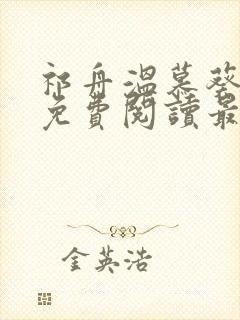 祁舟溫慕葵
免費閱讀最
金英浩